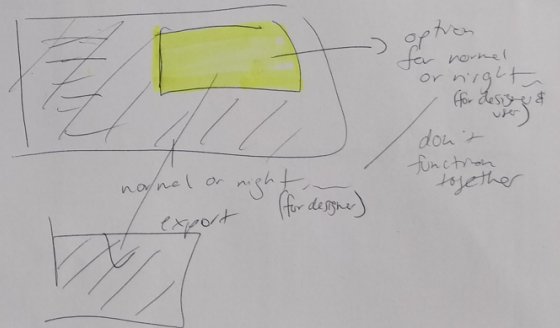 option
for normal
or night
(for designer &
user)
don't
function
together
normal or night
(for designer)
export